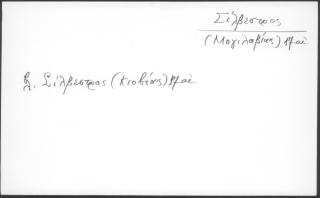 Σίλβεστρος
(Μογιλαβίας) 17 αἰ.
βλ. Σίλβεστρος (Κιοβίας) 17 αἰ.